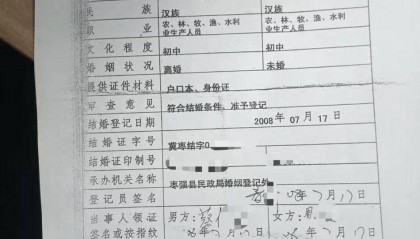 民 族 汉族 汉族
职 业 农、林、牧、渔、水利业生产人员 农、林、牧、渔、水利业生产人员
文 化 程 度 初中 初中
婚 姻 状 况 离婚 未婚
提供证件材料 户口本、身份证
审 查 意 见 符合结婚条件，准予登记
结婚登记日期 2008 年 07 月 17 日
结婚证字号 冀枣结字0
结婚证印制号
承办机关名称 枣强县民政局婚姻登记处
登记员签名 08年7月17日
当事人领证 男方： 女方：
签名或按指纹 08年7月17日 08年7月17日